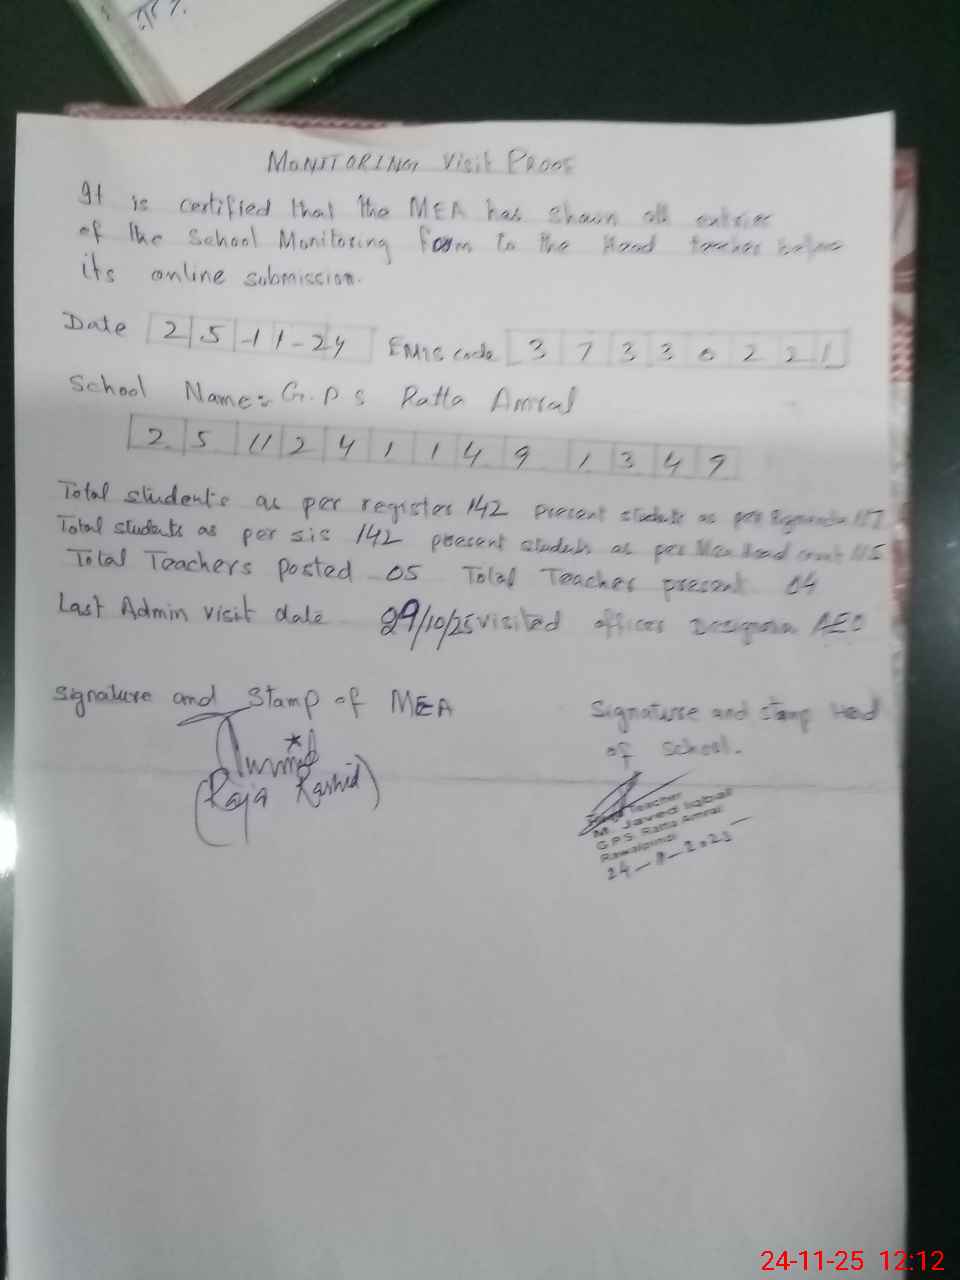 MONITORING Visit PROOF
It is certified that the MEA has shown all entries
of the School Monitoring form to the Head teacher before
its online submission.
Date 25-11-24 EMIS code 3 7 3 3 0 2 2 1
School Name: G.P S Ratta Amral
2 5 11 2 4 1 1 4 9 1 3 4 9
Total students as per register 142 present students as per
Total students as per sis 142 present students as per Mea Head count 115
Total Teachers posted 05 Total Teacher present 04
Last Admin visit date 29/10/25 visited officer AEO
Signature and Stamp of MEA
Signature and stamp Head
of School.
(Raja Rashid)
Teacher
M. Javed Iqbal
G.P.S. Ratta Amral
Rawalpindi
24-11-25 12:12